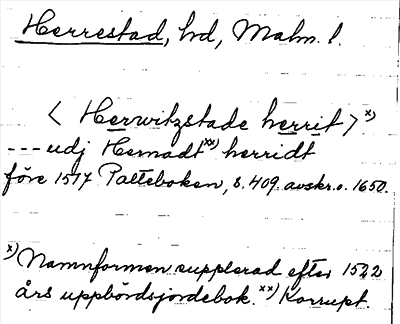 Herrestad, hd, Malm. l.
< Herwitzstade herrit > x)
--- udj Hernadt xx) herridt
före 1517 Palteboken, s. 409 avskr. o. 1650.
x) Namnformen supplerad efter 1522
års uppbördsjordebok. xx) Korrupt.